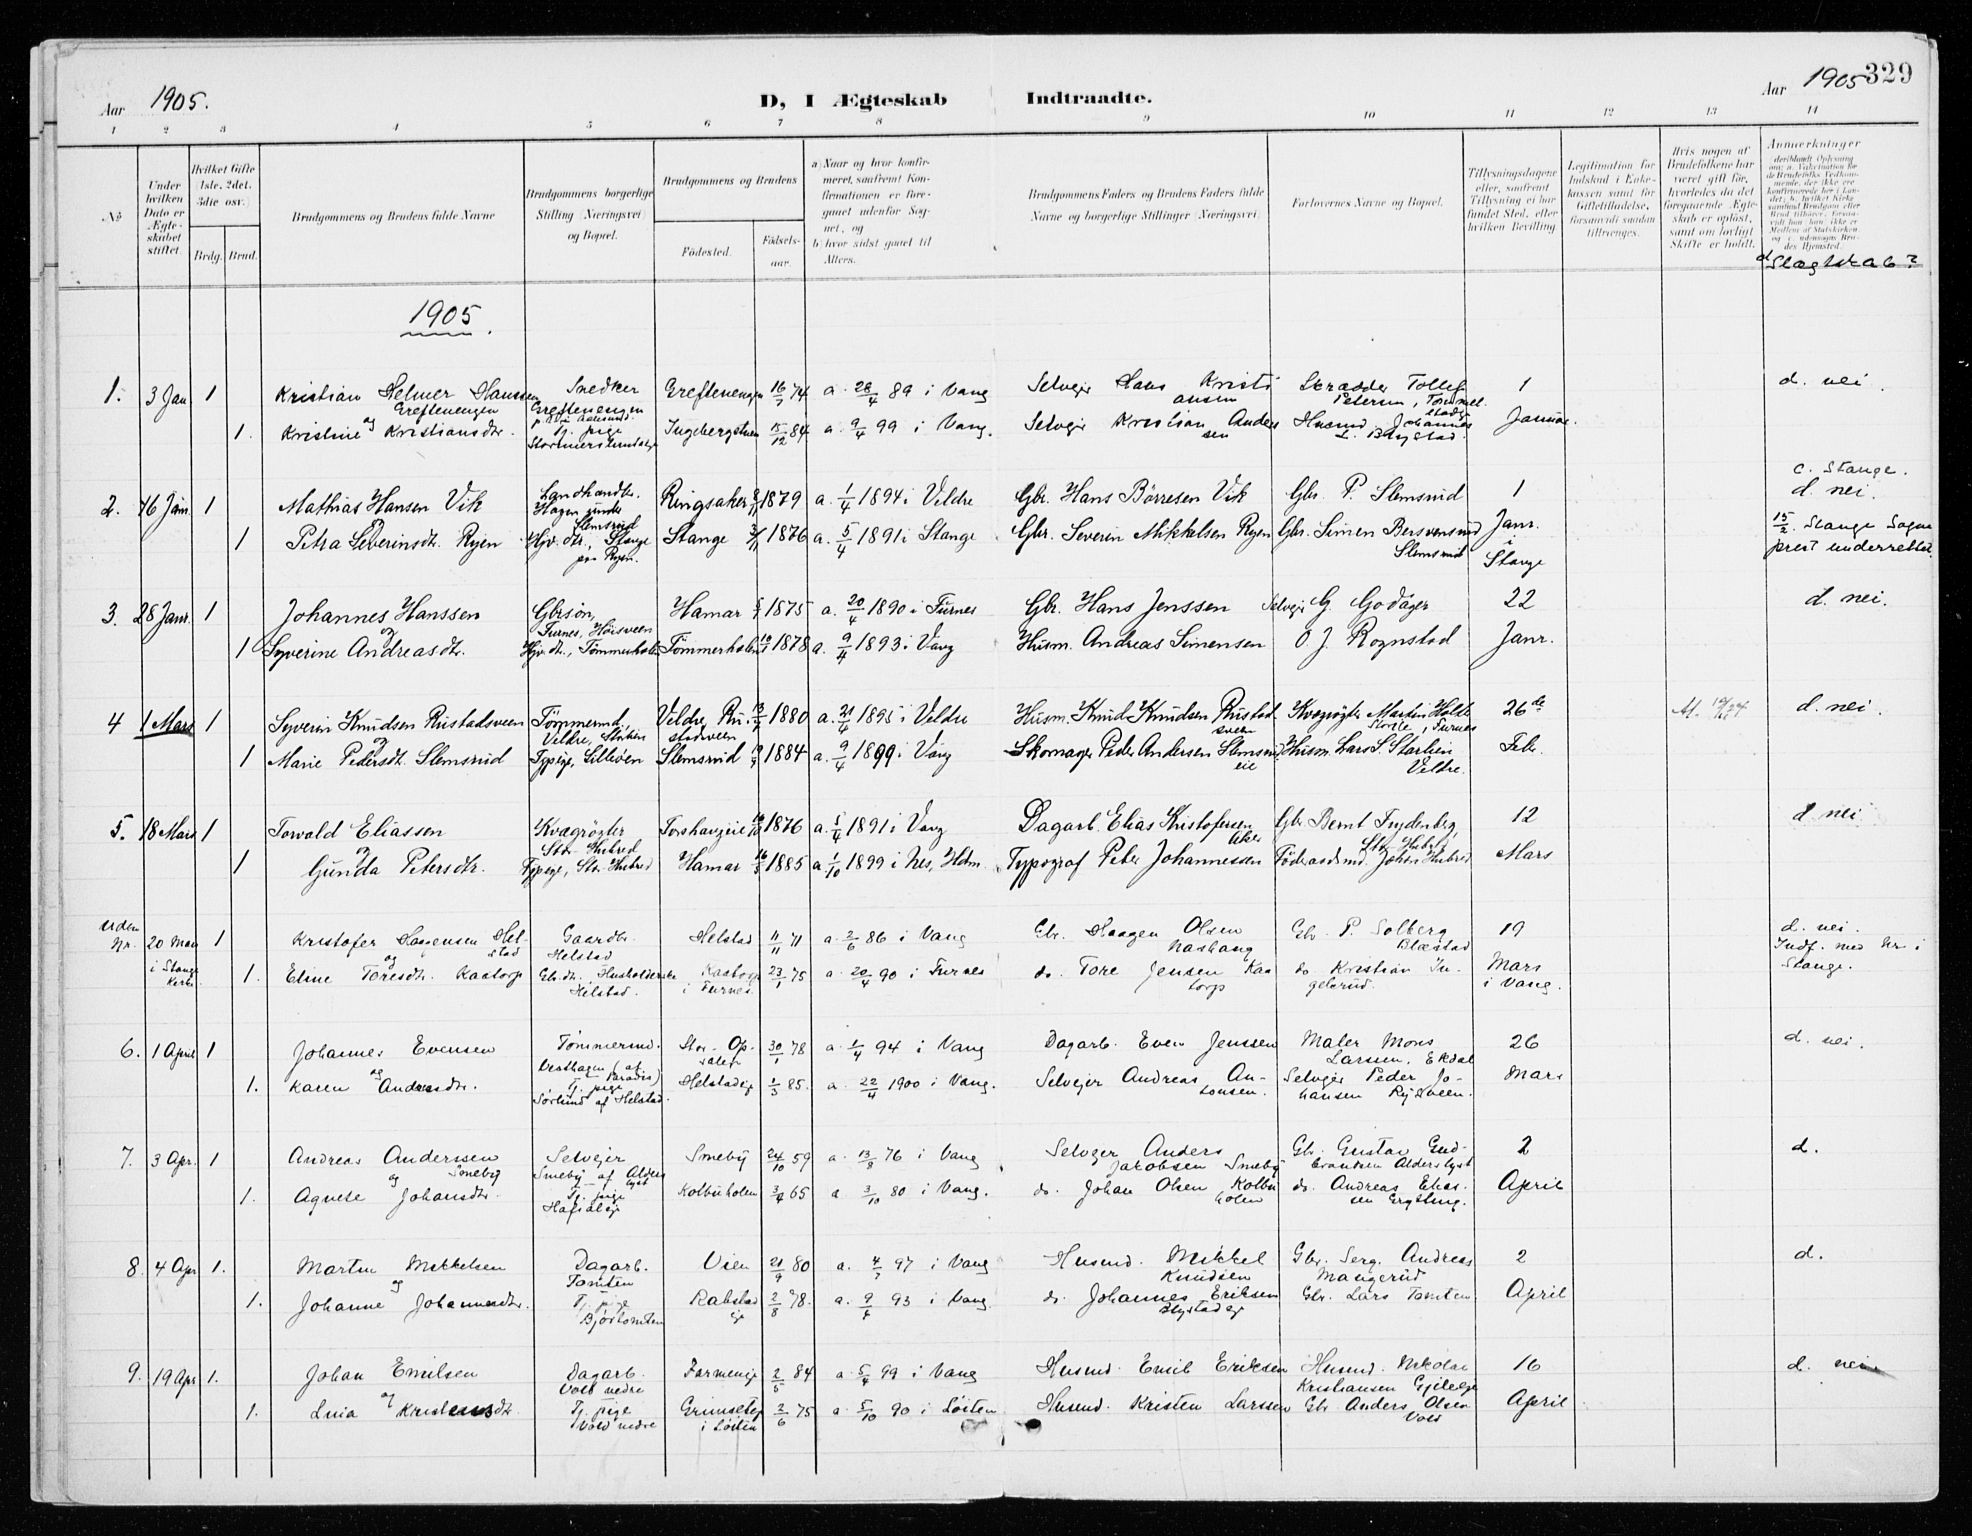 Aar 1905. D, I Ægteskab Indtraadte. Aar 1905 329
1 2 3 4 5 6 7 8 9 10 11 12 13 14
№
Under hvilken Dato er Ægteskabet stiftet.
Hvilket Gifte 1ste, 2det, 3die osv.
Brdg. Brud.
Brudgommens og Brudens fulde Navne
Brudgommens borgerlige Stilling (Næringsvei) og Bopæl.
Brudgommens og Brudens
Fødested. Fødselsaar.
a) Naar og hvor konfirmeret, saafremt Konfirmationen er foregaaet udenfor Sognet, og
b) hvor sidst gaaet til Alters.
Brudgommens Faders og Brudens Faders fulde Navne og borgerlige Stillinger (Næringsvei)
Forlovernes Navne og Bopæl.
Tillysningsdagene eller, saafremt Tillysning ei har fundet Sted, efter hvilken Bevilling
Legitimation for Indskud i Enkekassen samt for Giftetilladelse, forsaavidt saadan tiltrænges.
Hvis nogen af Brudefolkene har været gift før, hvorledes da det foregaaende Ægteskab er opløst, samt om lovligt Skifte er holdt.
Anmerkninger
d Slægtskab?
1905.
1. 3 Jan 1 Kristian Helmer Hanssen Snedker Greftenengen 16/7 74 a. 28/4 89 i Vang Selveier Hans Kristiansen Skrædder Tollef Petersen, Tommelstad 1 d. nei.
Greftenengen og Greftenengen
1. Kristine Kristiansdtr. Tj. pige Ingebergstuen 15/12 84 a 9/4 99 i Vang. Selveier Kristian Andersen Husmd Johannes L. Blystad. Januar.
2. 16 Jan. 1 Mathias Hansen Vik Landhandlr. Hagen under Slemsrud Ringsaker 1879 a. 1/4 1894 i Veldre Gbr. Hans Børresen Vik Gbr. P. Slemsrud 1 c. Stange. d. nei.
1 Petra Severinsdtr. Ryen Stange paa Ryen. Stange 1876 a. 5/4 1891 i Stange Gbr. Severin Mikkelsen Ryen Gbr. Simen Bersvensrud Slemsrud Janr. i Stange 15/2. Stange Sogneprest underrettet.
3. 28 Janr. 1 Johannes Hanssen Gbrsøn, Furnes, Hoisveen Hamar 1875 a. 20/4 1890 i Furnes Gbr. Hans Jenssen Selveier G. Godager 22 d. nei.
og
1 Syverine Andreasdtr. Tømmerholen Tømmerholen 1878 a. 9/4 1893 i Vang Husm. Andreas Simensen O. J. Rognstad Janr.
4 1 Mars 1 Syverin Knudsen Rustadsveen Tømmermd. Veldre, Veldre, Rustadsveen 1880 a. 21/4 1895 i Veldre Husm. Knud Knudsen Rustadsveen Kvægrøgter Martin Holte Furnes 26de d. nei.
og
1 Marie Pedersdtr. Slemsrud Tjpige, Lilleøen Slemsrud 1884 a. 9/4 1899 i Vang Skomager Peder Andersen Slemsrudeie Husm. Lars S. Starlien Veldre. Febr.
5. 18 Mars 1 Torvald Eliassen Kvægrøgter 1876 a. 5/4 1891 i Vang Dagarb. Elias Kristofersen Aker Gbr Bernt Frydenberg, 12 d nei
og
1 Gunda Petersdtr. Tjpige, Str. Husbed Hamar 16/3 1885 a 1/10 1899 i Nes, Hdm. Typograf Peter Johannessen Føderaadsmd. Johan Mars
uden Nr. 20 Mars 1 Kristofer Haagensen Helstad Gaardbr. Helstad Helstad 11/11 71 a. 2/6 86 i Vang Gbr. Haagen Olsen Nashaug Gbr P. Solberg Blæstad 19 d. nei. Indf. med Nr i Stange.
og
i Stange Kirke 1. Eline Toresdtr. Kaatorp Gbrdtr. Husholderske Helstad. Kaatorp i Furnes 23/1 75 a. 20/4 90 i Furnes do. Tore Jensen Kaatorp do Kristian Ingelsrud. Mars i Vang.
6. 1 April 1 Johannes Evensen Tømmermd. Vesthagen (af Paradis) Str. Opsaleje 30/1 78 a 1/4 94 i Vang Dagarb. Even Jenssen Maler Mons Larsen, Ekdal 26 d. nei.
og
1. Karen Andreasdtr. Tj. pige Sørlund af Helstad. Helstadeje 1/3 85. a. 22/4 1900 i Vang. Selveier Andreas Antonsen. Selveier Peder Johansen Rydsveen. Mars
7. 3 Apr. 1 Andreas Anderssen Smeby Selveier Smeby af Alderslyst Smeby 24/10 59 a. 13/8 76 i Vang Selveier Anders Jakobsen Smeby Gbr. Gustav Gudbrandsen Alderslyst 2 d.
og
1. Agnete Johansdtr. Tj. pige Kolbuholen 3/4 65 a 3/10 80 i Vang. do. Johan Olsen Kolbuholen do. Andreas Eliassen April
8. 4 Apr 1. Martin Mikkelsen Dagarb. Tomten Vien 21/9 80 a. 4/7 97 i Vang Husmd. Mikkel Knudsen Gbr. Serg. Andreas Mangerud 2 d.
og
1. Johanne Johannesdtr. Tj. pige Bjørtomten Rabstadeje 2/8 78. a. 9/4 93 i Vang. do. Johannes Eriksen Blystadeje Gbr. Lars Tomten April
9. 19 Apr 1. Johan Emilsen Dagarb. Vold nedre Farmeneje 2/5 84 a. 5/4 99 i Vang Husmd. Emil Eriksen Husmd. Nikolai Kristiansen 16 d. nei.
og
1. Kristensdtr. Tj. pige Vold nedre i Løiten 2/6 75 a 5/10 90 i Løiten Husmd. Kristen Larssen Gbr Anders Olsen Vold April